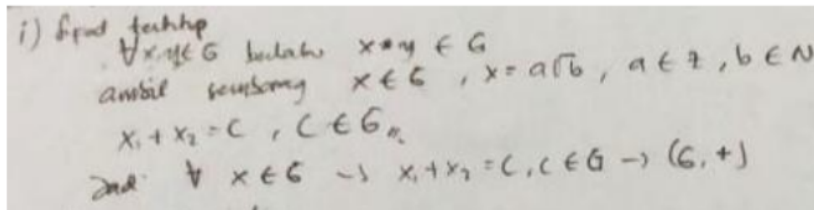 i) Sifat tertutup
∀x,y∈G berlaku x*y ∈ G
ambil sembarang x ∈ G , x = a√b , a ∈ Z , b ∈ N
x₁ + x₂ = C , C ∈ G //.
Jadi ∀ x ∈ G → x₁ + x₂ = C, C ∈ G → (G, +)